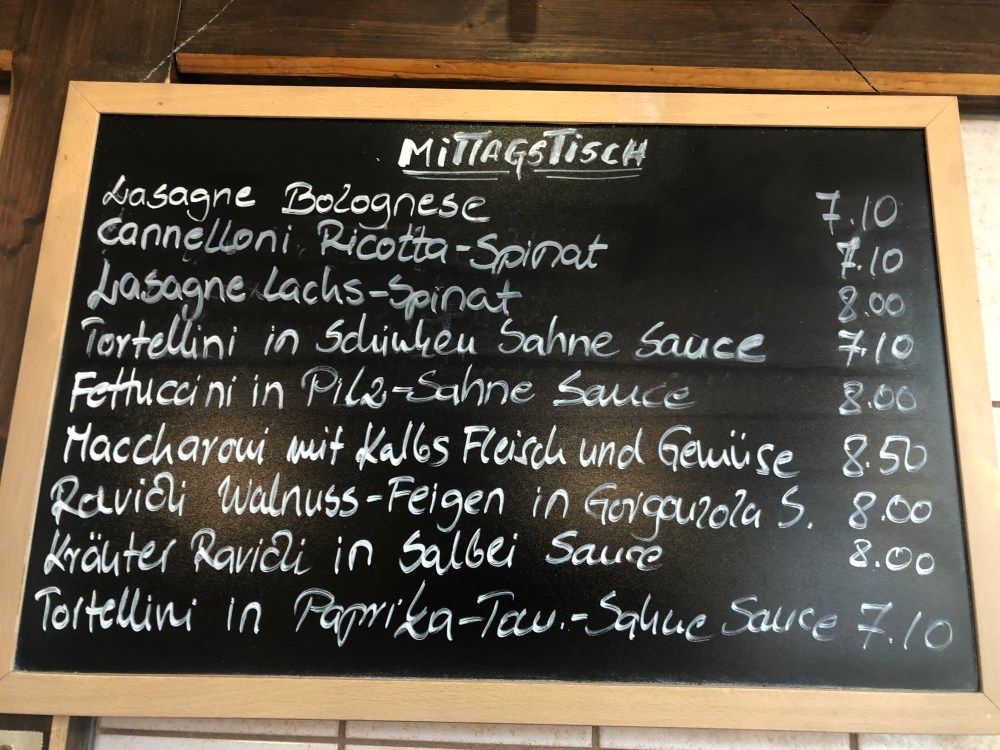 MiTTAGSTiSCH
Lasagne Bolognese 7.10
Cannelloni Ricotta-Spinat 7.10
Lasagne Lachs-Spinat 8.00
Tortellini in Schinken Sahne Sauce 7.10
Fettuccini in Pilz-Sahne Sauce 8.00
Maccharoni mit Kalbs Fleisch und Gemüse 8.50
Ravioli Walnuss-Feigen in Gorgonzola S. 8.00
Kräuter Ravioli in Salbei Sauce 8.00
Tortellini in Paprika-Tom.-Sahne Sauce 7.10